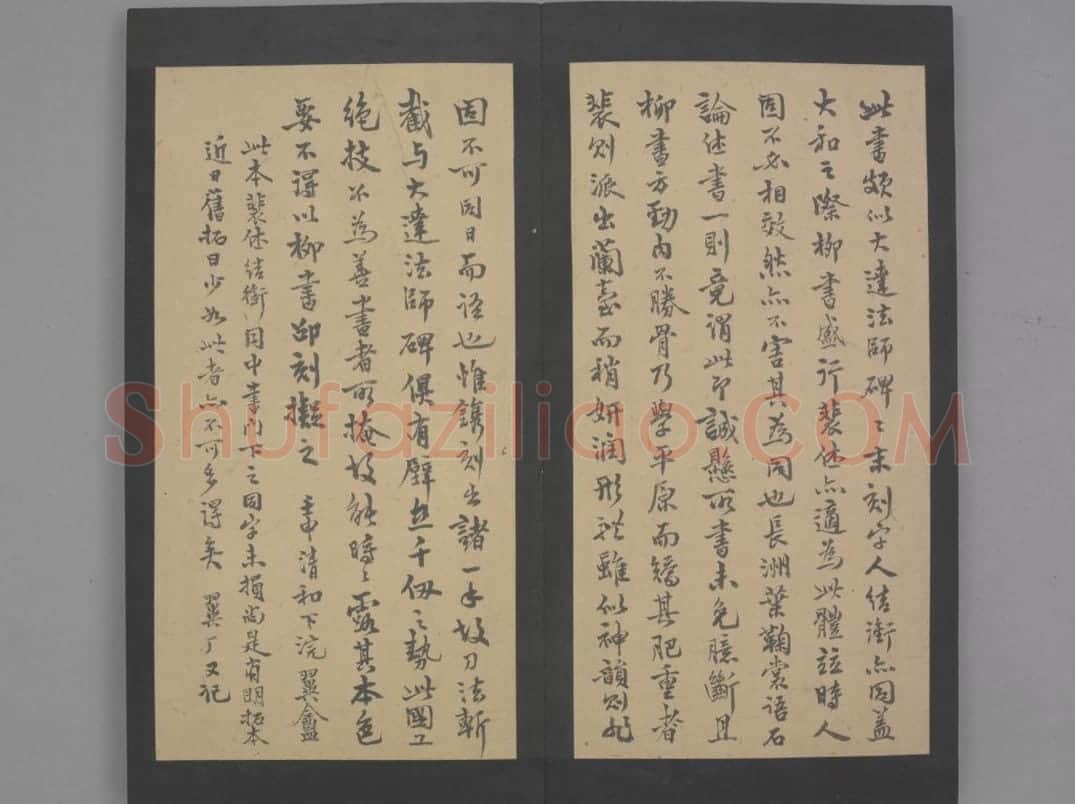 此書頗似大達法師碑〻末刻字人結銜亦同蓋
大和之際柳書盛行裴休亦適為此體竝時人
固不必相效然亦不害其為同也長洲葉鞠裳語石
論休書一則竟謂此即誠懸所書未免臆斷且
柳書方勁內不勝骨乃學平原而矯其肥重者
裴則派出蘭臺而稍妍潤形體雖似神韻則
固不可同日而語也惟鐫刻出諸一手故刀法斬
截与大達法師碑俱有壁立千仞之勢此國工
絕技不為善書者所掩故能時〻露其本色
要不得以柳書邵刻擬之 壬申清和下浣翼盦
此本裴休結銜同中書門下之同字未損尚是有明拓本
近日舊拓日少如此者亦不可多得矣 翼丁又記
Shufaziliao.COM